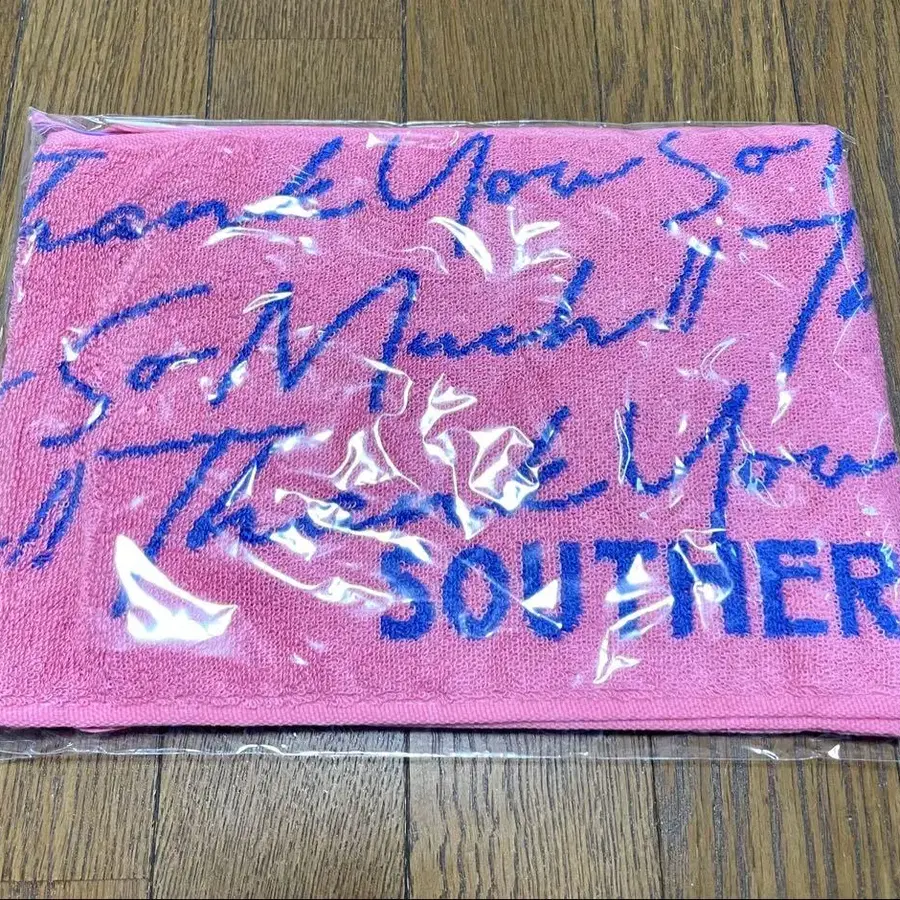 Thank You So
So Much!! T
!! Thank You
SOUTHER